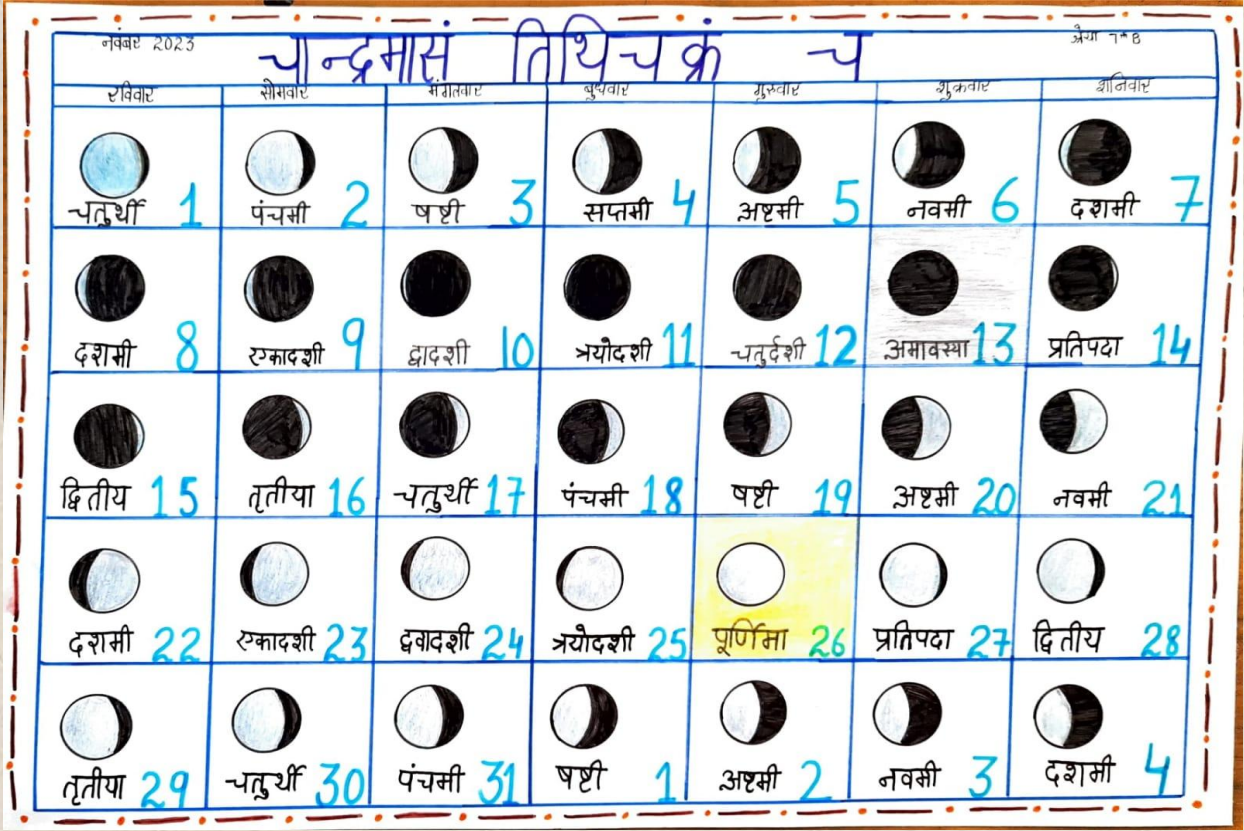 नवंबर 2023
चान्द्रमासं तिथिचक्रं च
श्रेया 7ᵗʰ B
रविवार सोमवार मंगलवार बुधवार गुरुवार शुक्रवार शनिवार
चतुर्थी 1 पंचमी 2 षष्टी 3 सप्तमी 4 अष्टमी 5 नवमी 6 दशमी 7
दशमी 8 एकादशी 9 द्वादशी 10 त्रयोदशी 11 चतुर्दशी 12 अमावस्या 13 प्रतिपदा 14
द्वितीय 15 तृतीया 16 चतुर्थी 17 पंचमी 18 षष्टी 19 अष्टमी 20 नवमी 21
दशमी 22 एकादशी 23 द्वादशी 24 त्रयोदशी 25 पूर्णिमा 26 प्रतिपदा 27 द्वितीय 28
तृतीया 29 चतुर्थी 30 पंचमी 31 षष्टी 1 अष्टमी 2 नवमी 3 दशमी 4